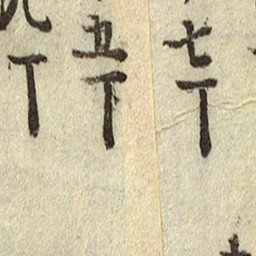 七丁
五丁
丁